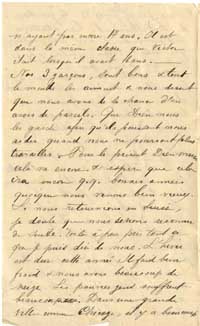 n'ayant pas encore 11 ans, il est
dans la même classe que Victor
Nos 3 garçons, sont bons & tout
le monde les aiment & nous disent
que nous avons de la chance d'en
avoir de pareils. Que Dieu nous
les garde afin qu'ils puissent nous
aider quand nous ne pourrons plus
travailler. Pour le présent Dieu merci
cela va encore & j'espère que cela
ira encore quelques bonnes années
quoique nous venons bien vieux.
Si nous retournions en Suisse,
je doute que nous serions reconnus
de toute
que je puis dire de nous. L'hiver
est dur cette année. Il fait bien
froid & nous avons beaucoup de
neige. Les pauvres gens souffrent
beaucoup. Dans une grande
ville comme Chicago, il y a beaucoup